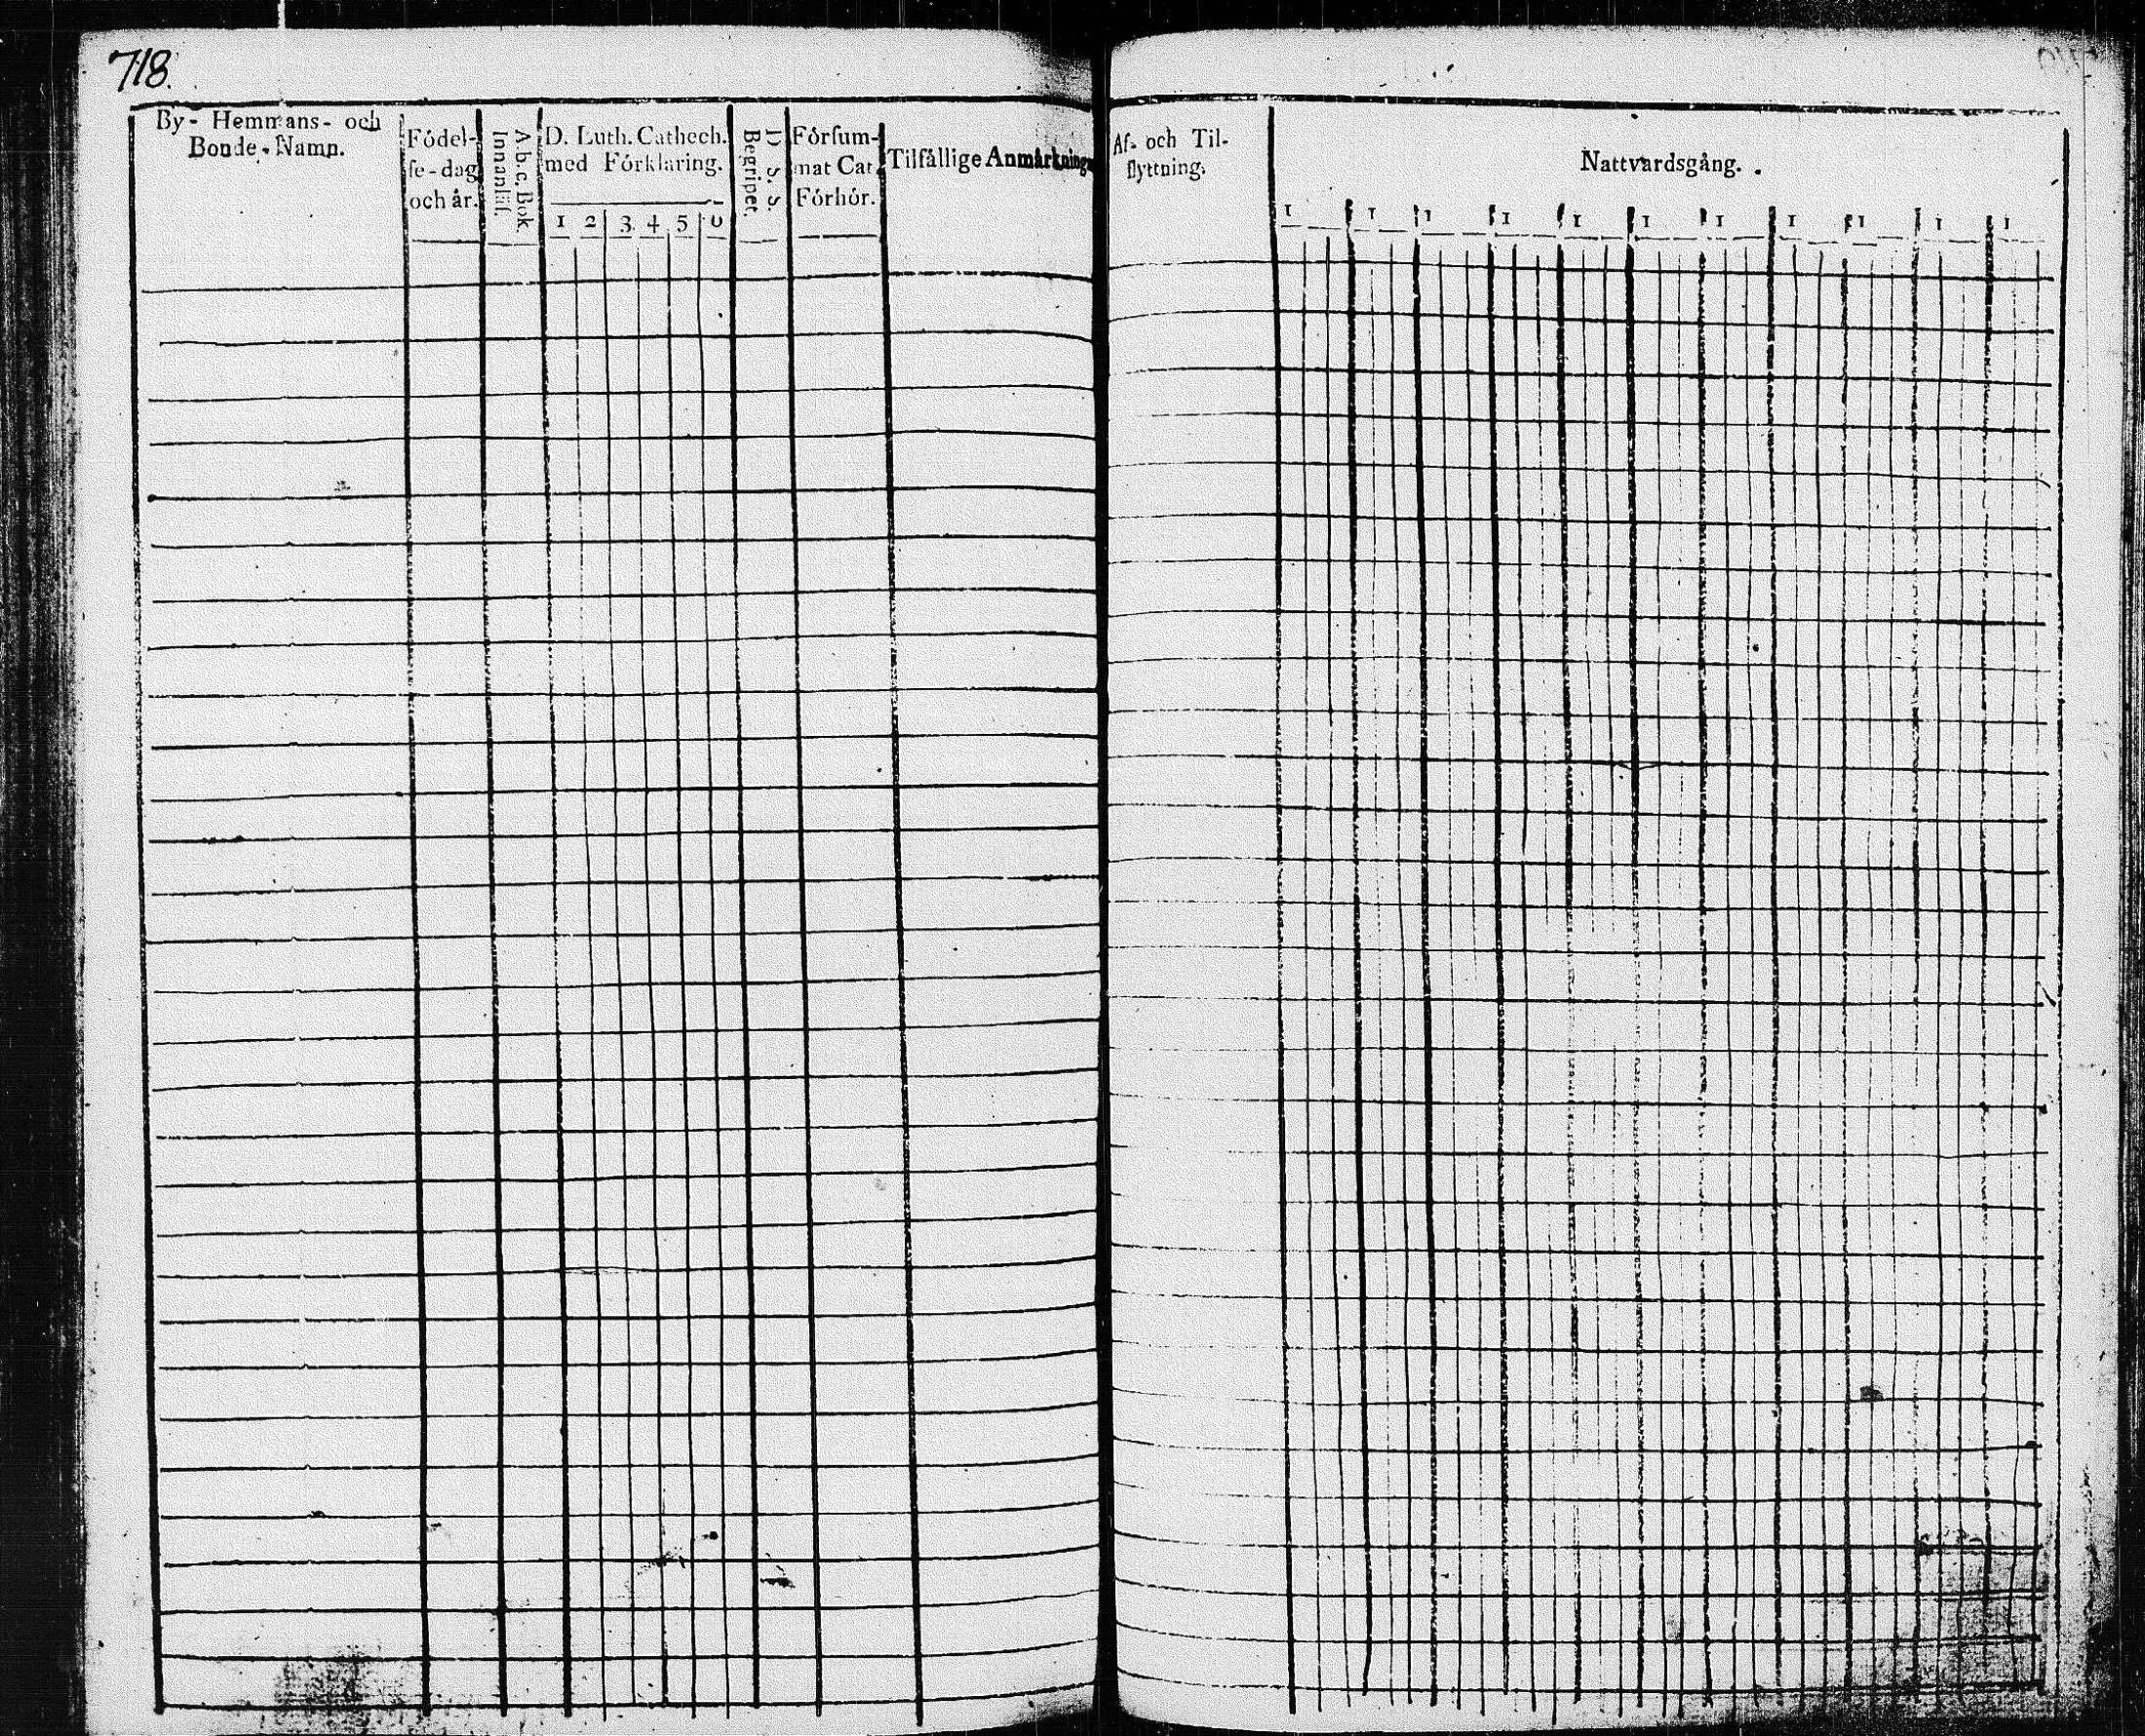 718.
By- Hemmans- och
Bonde-Namn.
Födel-
se-dag
och år.
A.b.c.Bok.
Innanläs.
D. Luth. Cathech.
med Förklaring.
1 2 3. 4 5 6
D. S. S.
Begripet.
Försum-
mat Cat.
Förhör.
Tilfällige Anmärkning
Af- och Til-
flyttning.
Nattvardsgång.
1 1 1 1 1 1 1 1 1 1 1